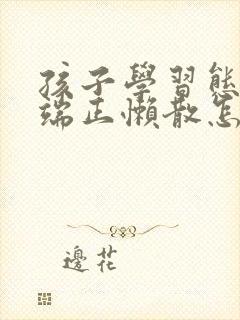 孩子學習態
端正懶散怎
邊花